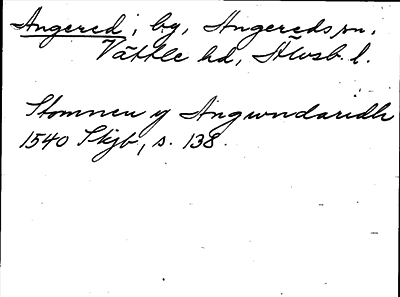 Angered, by, Angereds sn,
Vättle hd, Älvsb. l.
Stomnen y Angwndaredh
1540 Skjb, s. 138.